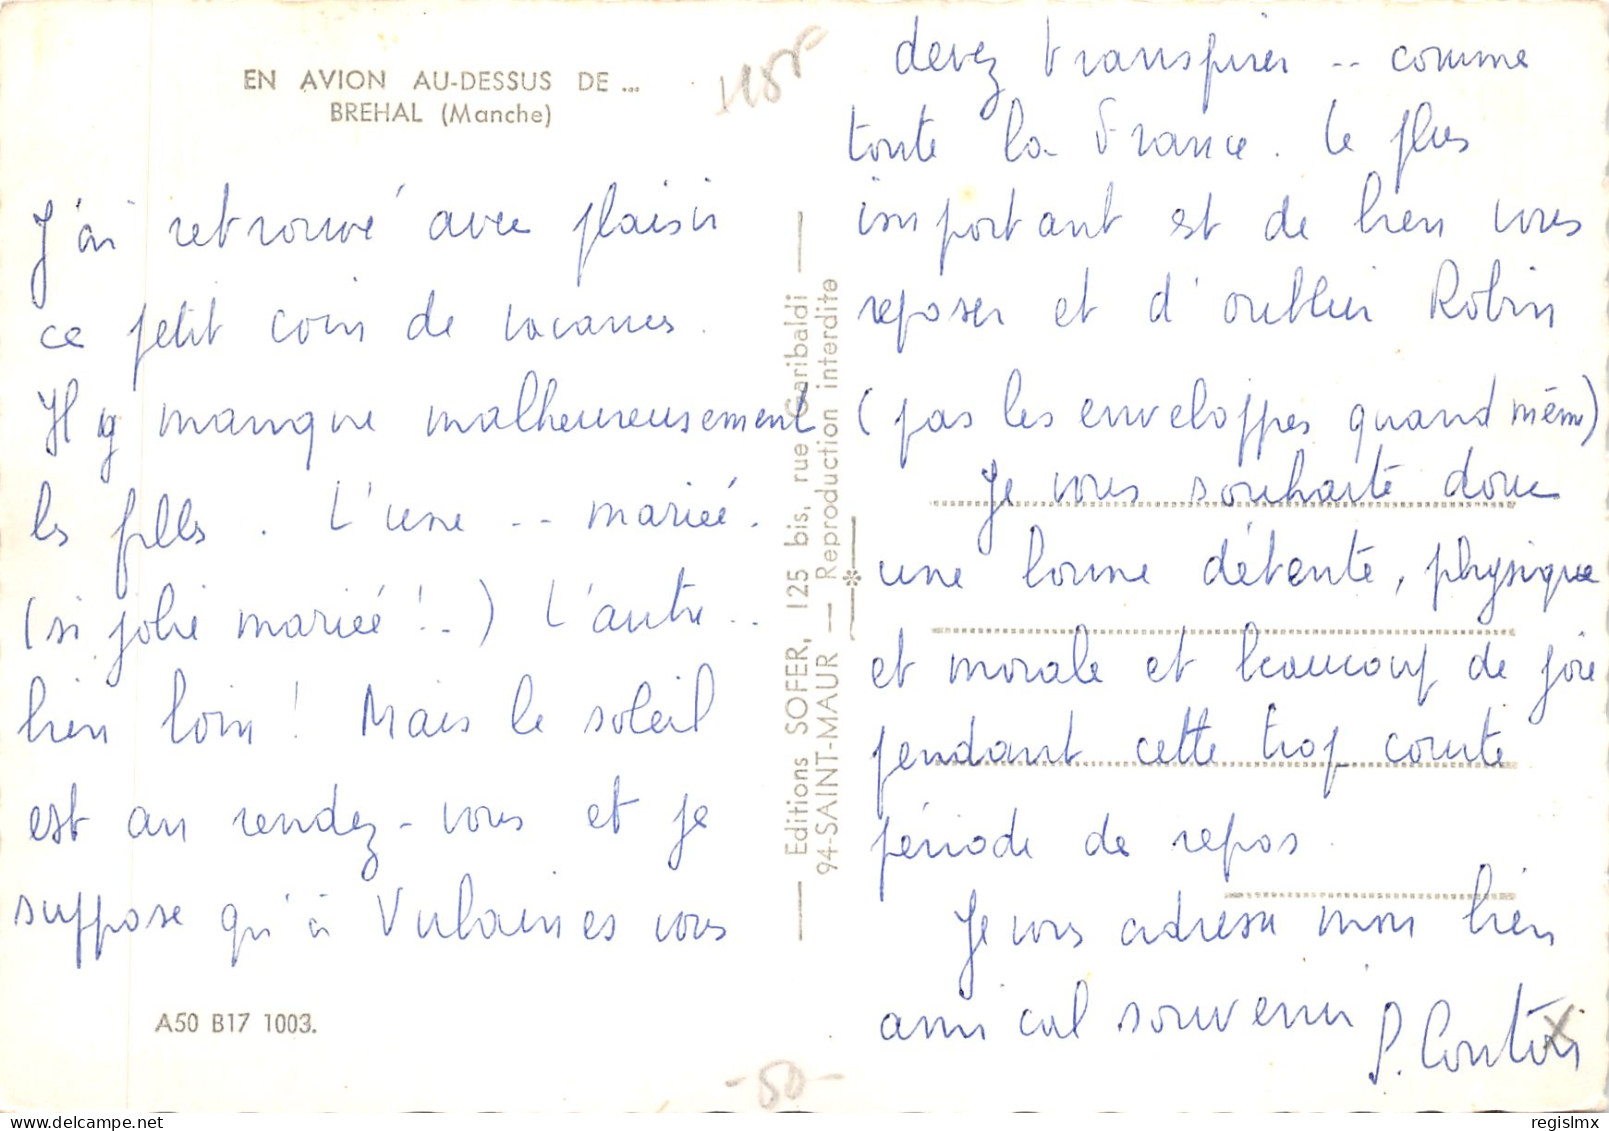 EN AVION AU-DESSUS DE ...
BREHAL (Manche)
J'ai retrouvé avec plaisir
ce petit coin de vacances.
Il y manque malheureusement
les filles. L'une -- mariée.
(si jolie mariée !..) L'autre..
bien loin ! Mais le soleil
est au rendez-vous et je
suppose qu'à Vulaines vous
A50 B17 1003.
Editions SOFER, 125 bis, rue Garibaldi
94-SAINT-MAUR — Reproduction interdite
devez transpirer -- comme
toute la France. Le plus
important est de bien vous
reposer et d'oublier Robin
(pas les enveloppes quand même)
Je vous souhaite donc
une bonne détente, physique
et morale et beaucoup de joie
pendant cette trop courte
période de repos.
Je vous adresse mon bien
amical souvenir
-50-
www.delcampe.net
regislmx